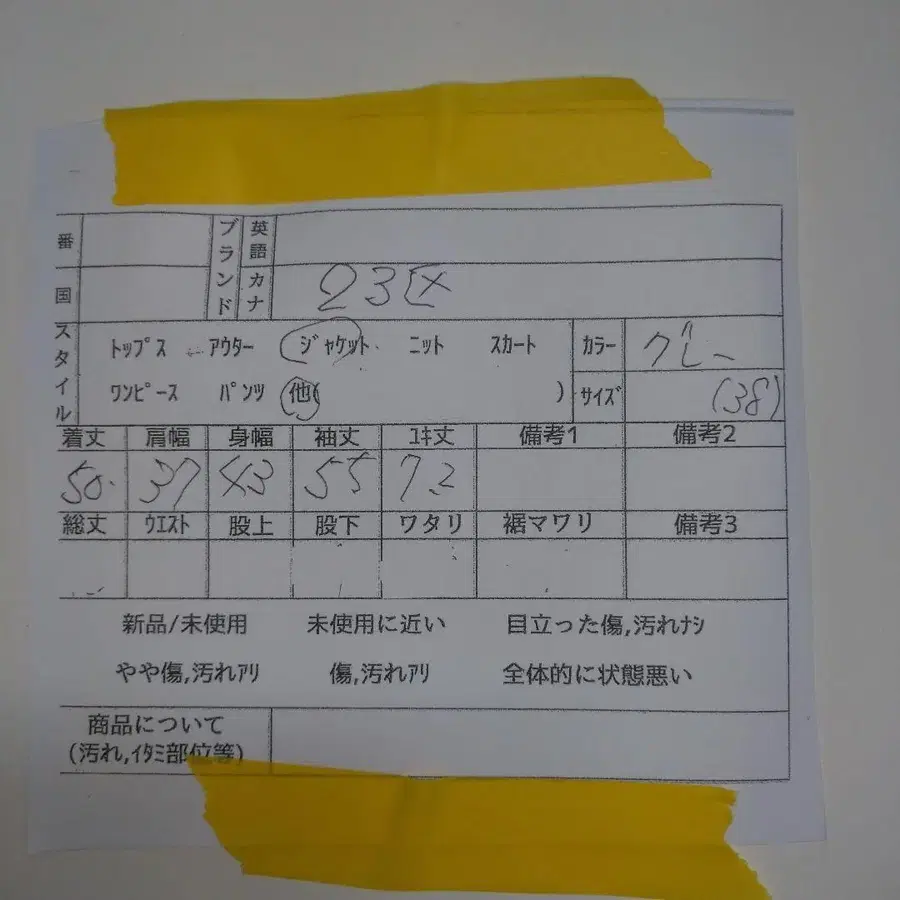 番 ブランド 英語
国 カナ 23区
スタイル トップス アウター ジャケット ニット スカート カラー グレー
ワンピース パンツ 他( ) サイズ (38)
着丈 肩幅 身幅 袖丈 ユキ丈 備考1 備考2
50. 37 43 55 72
総丈 ウエスト 股上 股下 ワタリ 裾マワリ 備考3
新品/未使用 未使用に近い 目立った傷,汚れナシ
やや傷,汚れアリ 傷,汚れアリ 全体的に状態悪い
商品について
(汚れ,イタミ部位等)